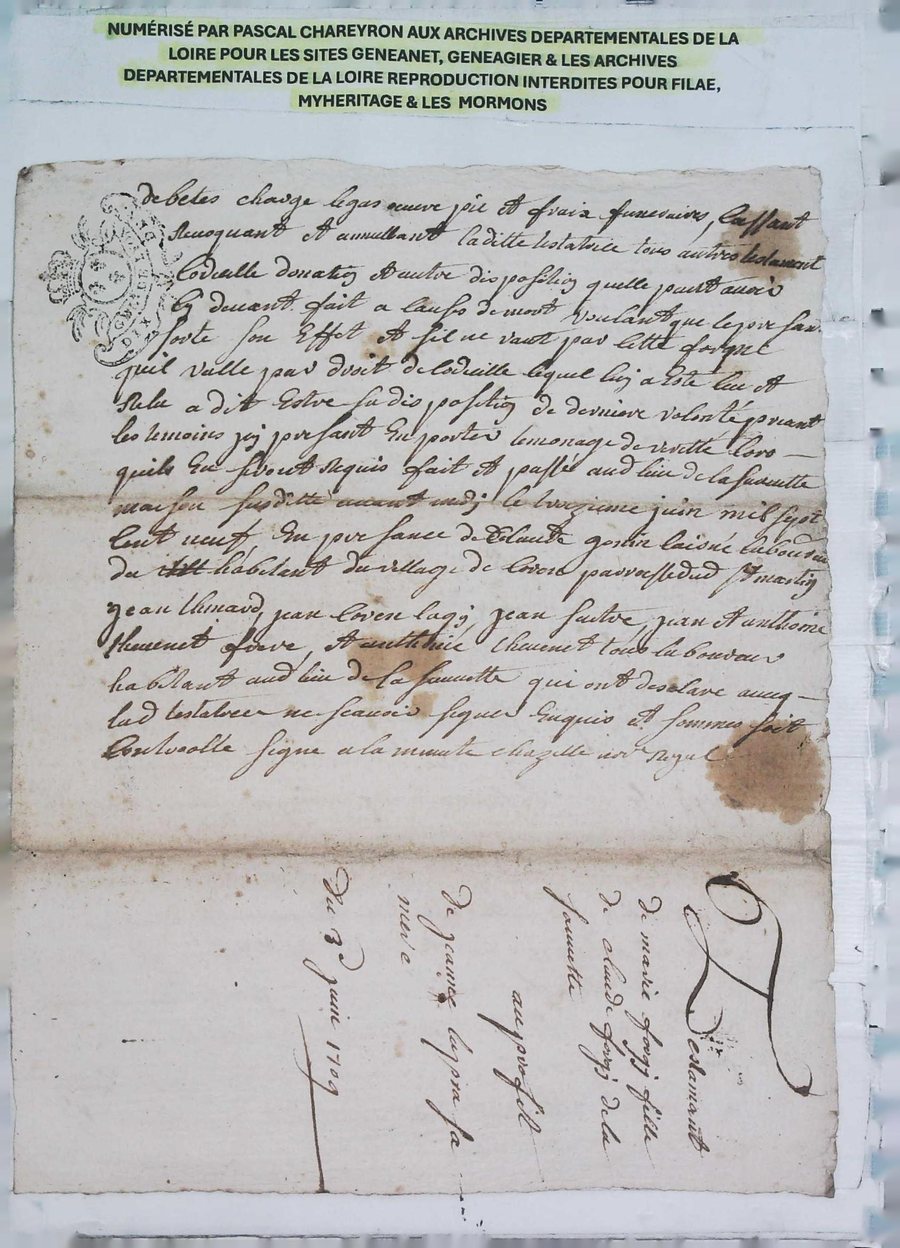 NUMÉRISÉ PAR PASCAL CHAREYRON AUX ARCHIVES DEPARTEMENTALES DE LA
LOIRE POUR LES SITES GENEANET, GENEAGIER & LES ARCHIVES
DEPARTEMENTALES DE LA LOIRE REPRODUCTION INTERDITES POUR FILAE,
MYHERITAGE & LES MORMONS
debetes charge legas euvre pie et fraix funeraires, cassant
Revoquant et annullant laditte testatrice tous autres testament
Codicille donation et autre disposition quelle peust avoir
Cy devant fait a cause de mort voulant que le presan
sorte son Effet et sil ne vaut par cette forme
quil vallie par droit de codicille lequel luy a esté leu et
Relu a dit Estre sa disposition de derniere volonté priant
les temoins icy presant En porter temonage de verité lors
quils En seront Requis fait et passé aud lieu de la sauvette
maison susditte avant midy le troizieme juin mil sept
Cent neuf En presance de Claude laisné laboureur
du habitant du village de parroisse dud St martin
jean jean jean jean et anthoine
thevenet frere, et thevenet tous laboureur
habitant aud lieu de la sauvette qui ont desclare avecq
lad testatrice ne scavoir signer Enquis et sommes soit
Controolle signe a la minute chazelle notre Royal
Testamant
de marie forgy fille
de claude forgy de la
sauvette
au profit
de jeanne sa
mere
Du 3e juin 1709